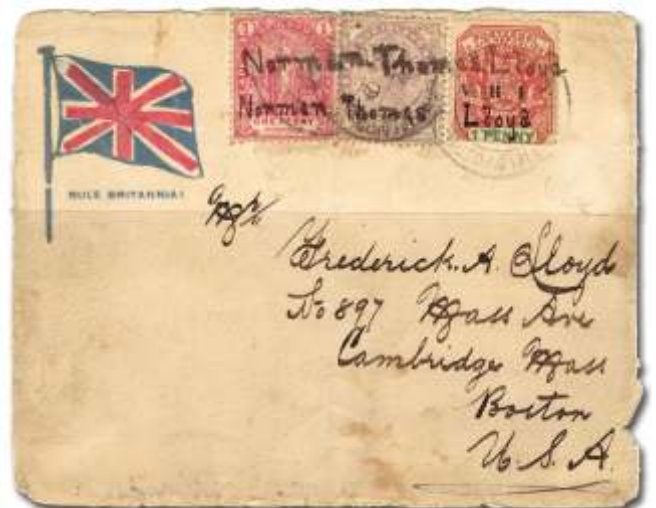 Norman Thomas Lloyd
Norman Thomas Lloyd
V.R.I.
1 PENNY
RULE BRITANNIA!
Mr
Frederick. A. Lloyd
No 897 Mass Ave
Cambridge Mass
Boston
U. S. A.